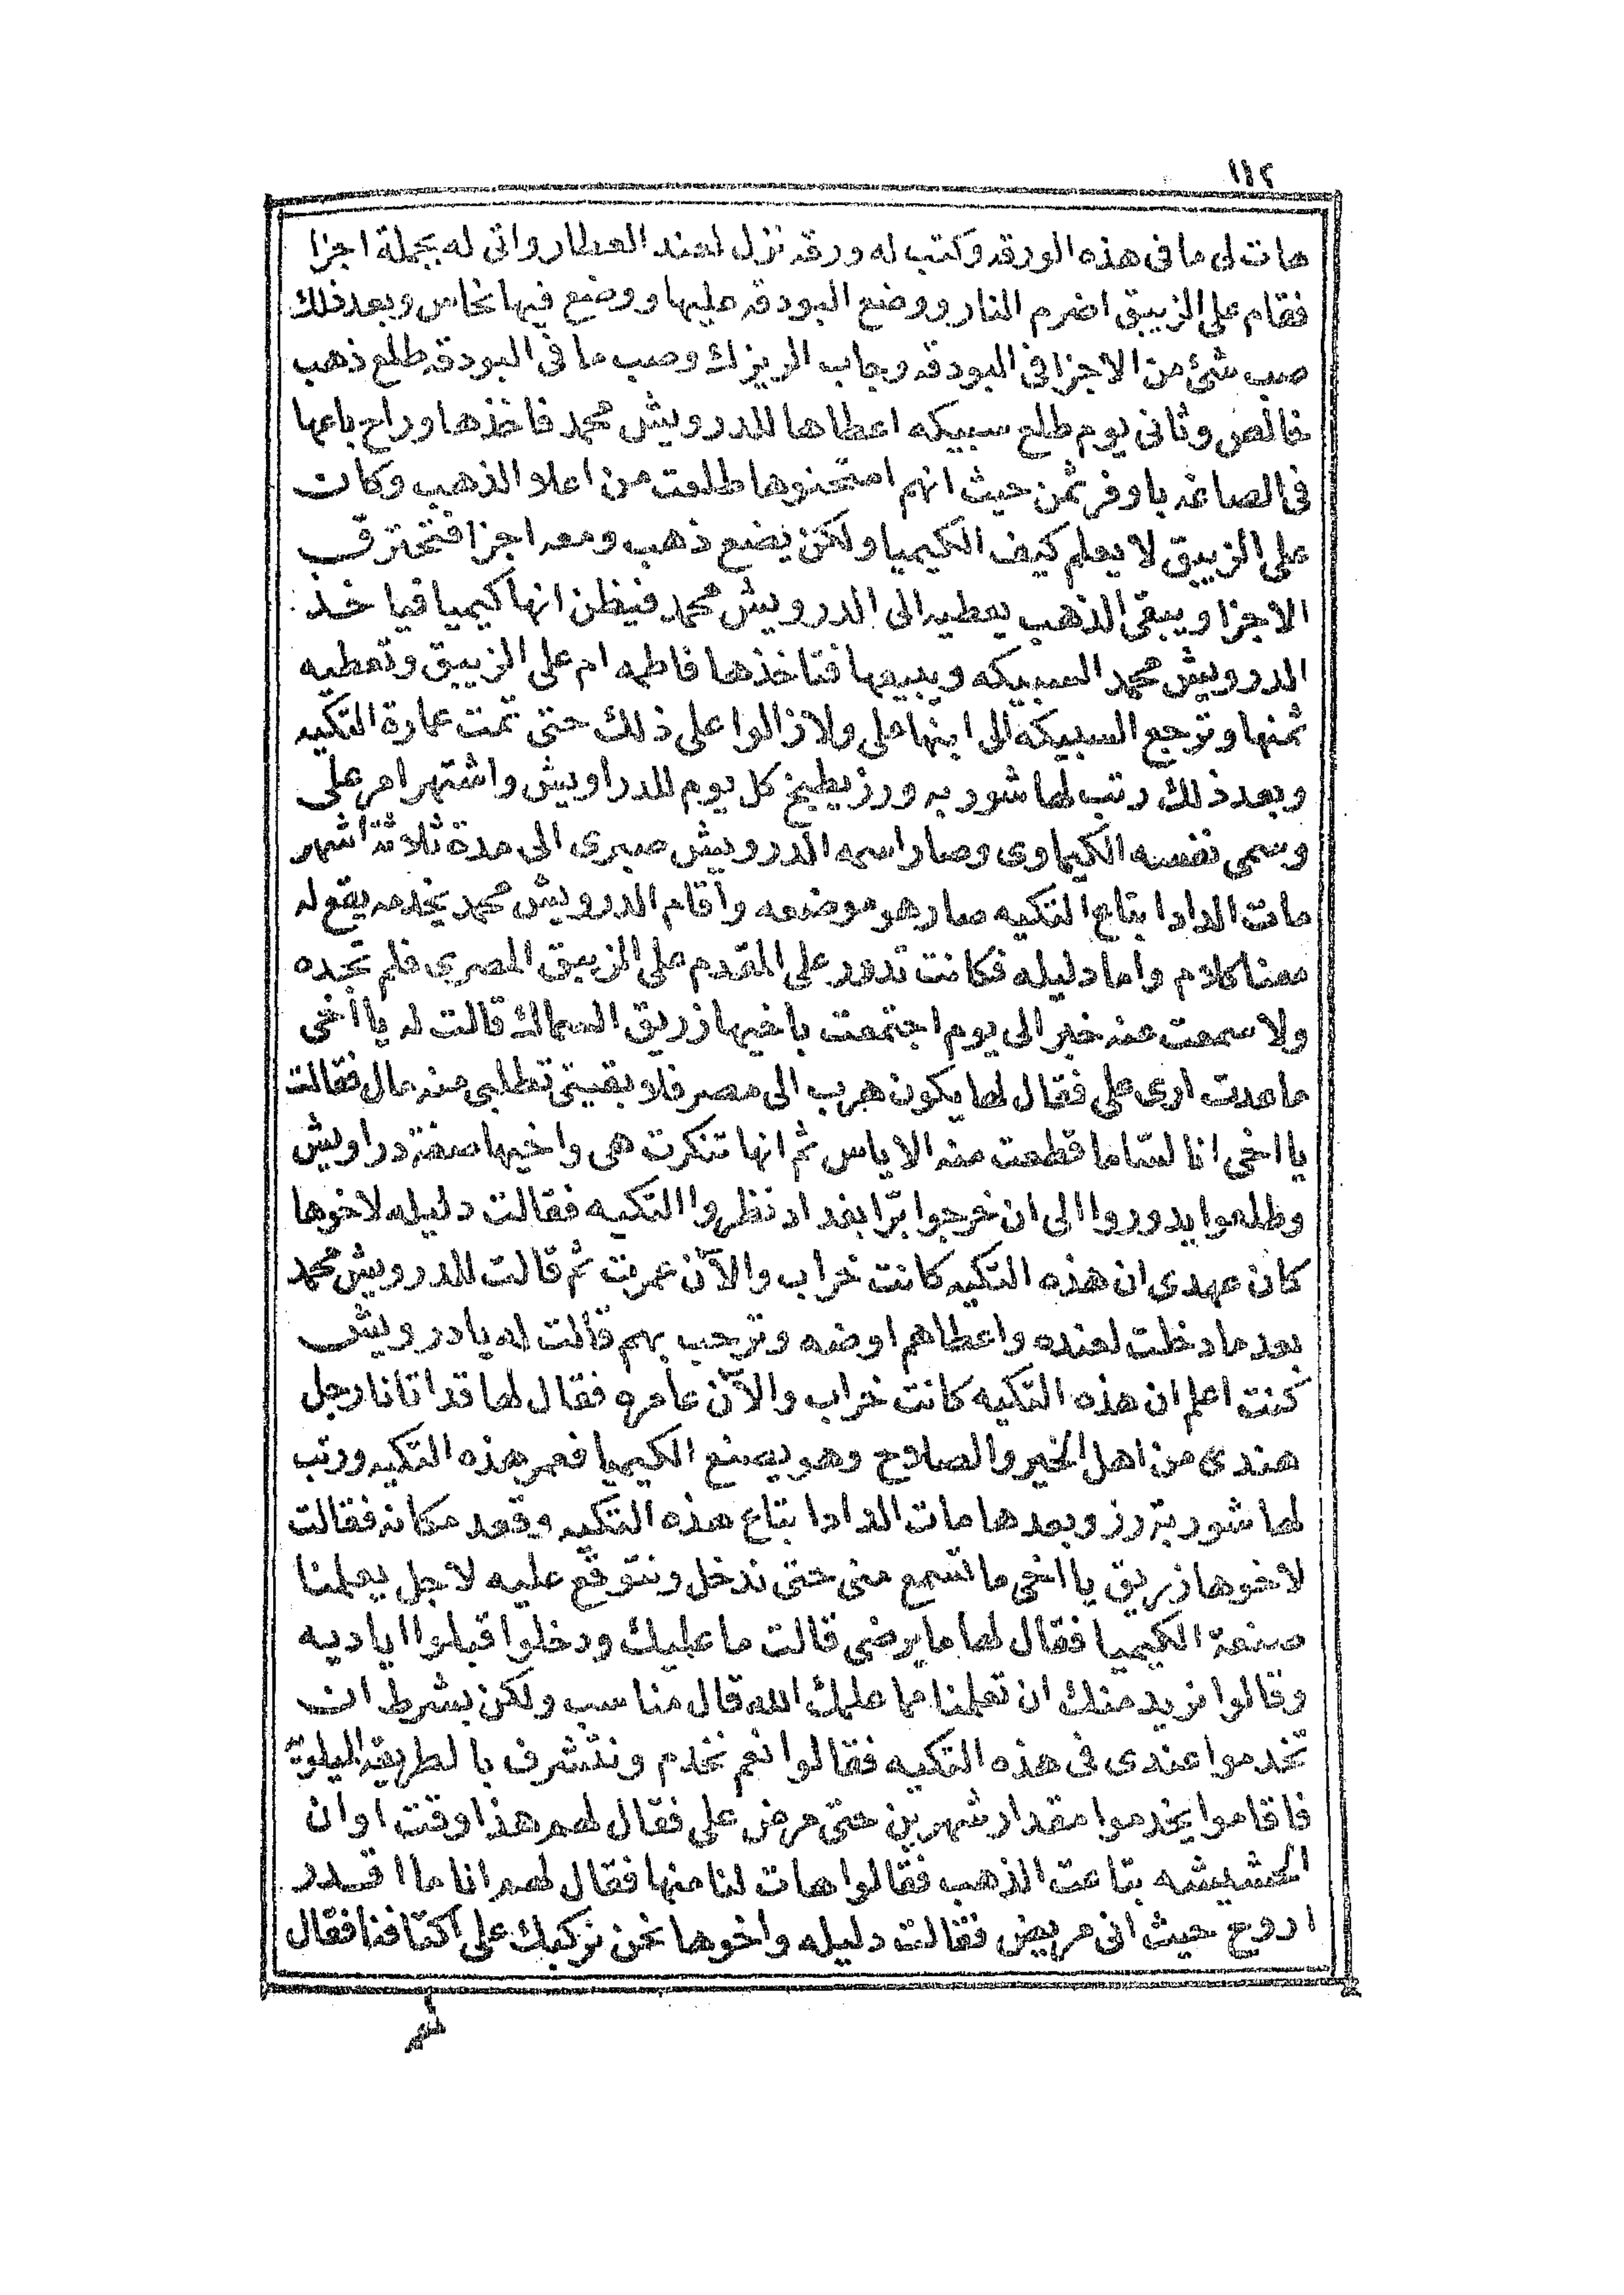 ١١٢
هات لى ما فى هذه الورقه وكتب له ورقه نزل لعند العطار واتى له بجملة اجزا
فقام على الزيبق اضرم النار ووضع البودقه عليها ووضع فيها نحاس وبعد ذلك
صب شئ من الاجزا فى البودقه وجاب الريزك وصب ما فى البودقه طلع ذهب
خالص وثانى يوم طلع سبيكه اعطاها للدرويش محمد فاخذها وراح باعها
فى الصاغه باوفر ثمن حيث انهم امتحنوها طلعت من اعلا الذهب وكان
على الزيبق لا يعلم كيف الكيميا ولكن يضع ذهب ومعه اجزا فتحترق
الاجزا ويبقى الذهب يعطيه الى الدرويش محمد فيظن انها كيميا فياخذ
الدرويش محمد السبيكه ويبيعها فتاخذها فاطمه ام على الزيبق وتعطيه
ثمنها وترجع السبيكه الى ابنها على ولازالوا على ذلك حتى تمت عمارة التكيه
وبعد ذلك رتب لها شوربه ورز يطبخ كل يوم للدراويش واشتهر امر على
وسمى نفسه الكيماوى وصار اسمه الدرويش صبرى الى مدة ثلاثة اشهر
مات الدادا بتاع التكيه صار هو موضعه واقام الدرويش محمد يخدمه يقع له
معنا كلام واما دليله فكانت تدور على المقدم على الزيبق المصرى فلم تجده
ولا سمعت عنه خبر الى يوم اجتمعت باخيها زريق السماك قالت له يا اخى
ما عدت ارى على فقال لها يكون هرب الى مصر فلا بقيتى تطلبى منه مال فقالت
يا اخى انا لسّا ما قطعت منه الاياس ثم انها تنكرت هى واخيها صفة دراويش
وطلعوا يدوروا الى ان خرجوا برّا بغداد نظروا التكيه فقالت دليله لاخوها
كان عهدى ان هذه التكيه كانت خراب والآن عمرت ثم قالت للدرويش محمد
بعد ما دخلت لعنده واعطاهم اوضه وترحب بهم قالت له يا درويش
كنت اعلم ان هذه التكيه كانت خراب والآن عامره فقال لها قد اتانا رجل
هندى من اهل الخير والصلاح وهو يصنع الكيميا فعمر هذه التكيه ورتب
لها شوربة رز وبعدها مات الدادا بتاع هذه التكيه وقعد مكانه فقالت
لاخوها زريق يا اخى ما تسمع منى حتى ندخل ونتوقع عليه لاجل يعلمنا
صنعة الكيميا فقال لها ما يرضى قالت ما عليك ودخلوا قبلوا اياديه
وقالوا نريد منك ان تعلمنا مما علمك الله قال مناسب ولكن بشرط ان
تخدموا عندى فى هذه التكيه فقالوا نعم نخدم ونتشرف بالطريقه
فاقاموا يخدموا مقدار شهرين حتى مرض على فقال لهم هذا وقت اوان
الحشيشه بتاعت الذهب فقالوا هات لنا منها فقال لهم انا ما اقدر
اروح حيث انى مريض فقالت دليله واخوها نحن نركبك على اكتافنا فقال
لهم